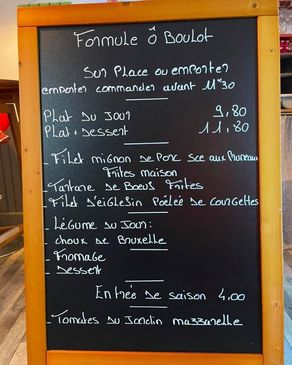 Formule Ô Boulot
Sur Place ou emporter
emporter commander avant 11h30
Plat du Jour 9,80
Plat + Dessert 11,80
- Filet mignon de Porc sce aux Pruneaux
Frites maison
- Tartare de Boeuf Frites
- Filet d'eiglefin Poêlée de courgettes
- Légume du Jour:
choux de Bruxelle
- Fromage
- Dessert
Entrée de saison 4,00
- Tomates du Jardin mozzarelle